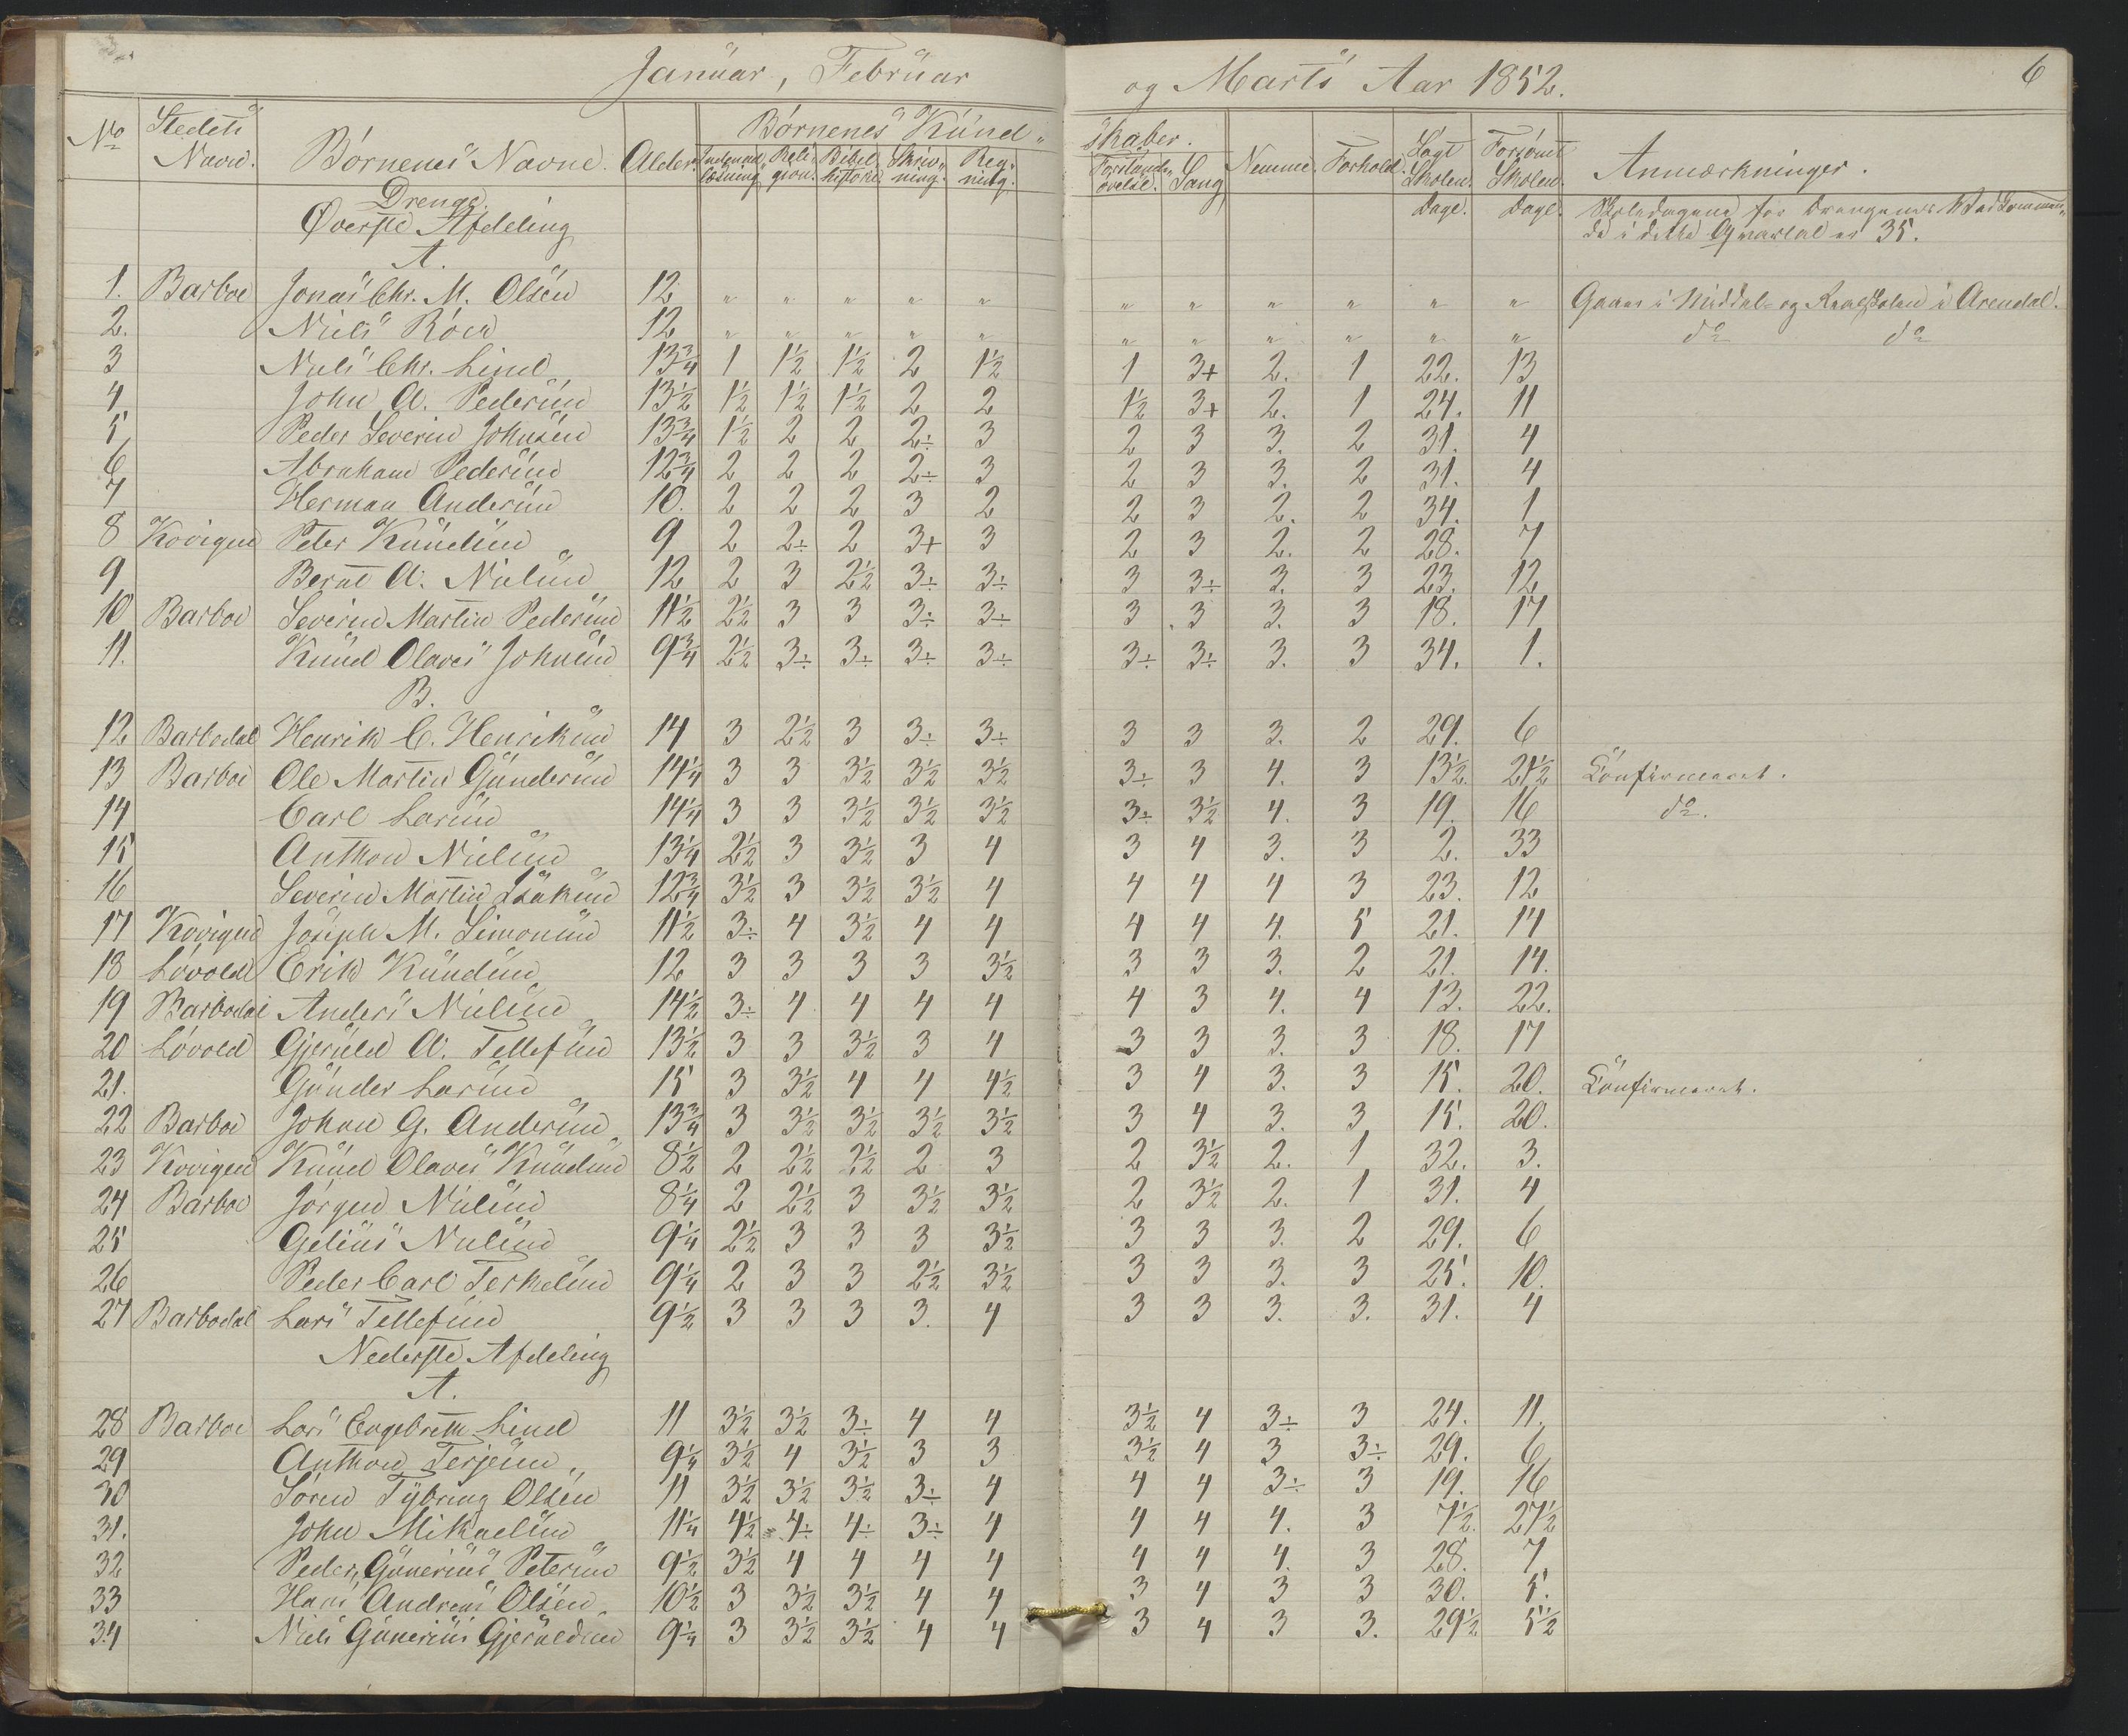 Januar, Februar og Marts Aar 1852. 6
No Stedets Navn. Børnenes Navne. Alder. Børnenes Kund- skaber. Nemme. Forhold. Søgt Skolen. Forsømt Skolen. Anmærkninger.
Indenadlæsning Religion. Bibelhistorie Skrivning. Regning. Forstandsøvelse. Sang
Drenge. Dage. Dage. Skoledagene for Drengenes Vedkommen-
Øverste Afdeling de i dette Qvartal er 35.
A.
1. Barboe Jonas Chr. M. Olsen 12 " " " " " " " " " " " Gaaer i Middel- og Realskolen i Arendal.
2. Niels Röed 12 " " " " " " " " " " " do do
3 Niels Chr. Lind 13¾ 1 1½ 1½ 2 1½ 1 3+ 2. 1 22. 13
4 John A. Pedersen 13½ 1½ 1½ 1½ 2 2 1½ 3+ 2. 1 24. 11
5 Peder Severin Johnsen 13¾ 1½ 2 2 2÷ 3 2 3 3. 2 31. 4
6 Abraham Pedersen 12¾ 2 2 2 2÷ 3 2 3 3. 2 31. 4
7 Herman Andersen 10. 2 2 2 3 2 2 3 2. 2 34. 1
8 Kovigen Peter Knudsen 9 2 2÷ 2 3+ 3 2 3 2. 2 28. 7
9 Bernt A. Nielsen 12 2 3 2½ 3÷ 3÷ 3 3÷ 3. 3 23. 12
10 Barboe Severin Martin Pedersen 11½ 2½ 3 3 3÷ 3÷ 3 3 3. 3 18. 17
11. Knud Olaves Johnsen 9¾ 2½ 3÷ 3÷ 3÷ 3÷ 3÷ 3÷ 3. 3 34. 1.
B.
12 Barbodal Henrik C. Henriksen 14 3 2½ 3 3÷ 3÷ 3 3 3. 2 29. 6
13 Barboe Ole Martin Gundersen 14¼ 3 3 3½ 3½ 3½ 3÷ 3 4. 3 13½. 21½ Confirmeret.
14 Carl Larsen 14¼ 3 3 3½ 3½ 3½ 3÷ 3½ 4. 3 19. 16 do.
15 Anthon Nielsen 13¼ 2½ 3 3½ 3 4 3 4 3. 3 2. 33
16 Severin Martin Isaksen 12¾ 3½ 3 3½ 3½ 4 4 4 4 3 23. 12
17 Kovigen Joseph M. Simonsen 11½ 3÷ 4 3½ 4 4 4 4 4. 5 21. 14
18 Løvold Erik Knudsen 12 3 3 3 3 3½ 3 3 3. 2 21. 14.
19 Barbodal Anders Nielsen 14½ 3÷ 4 4 4 4 4 3 4. 4 13. 22.
20 Løvold Gjeruld A. Tellefsen 13½ 3 3 3½ 3 4 3 3 3. 3 18. 17
21. Gunder Larsen 15 3 3½ 4 4 4½ 3 4 3. 3 15. 20. Confirmeret.
22 Barboe Johan G. Andersen 13¾ 3 3½ 3½ 3½ 3½ 3 4 3. 3 15. 20.
23 Kovigen Knud Olaves Knudsen 8½ 2 2½ 2½ 2 3 2 3½ 2. 1 32. 3.
24 Barboe Jörgen Nielsen 8¼ 2 2½ 3 3½ 3½ 2 3½ 2. 1 31. 4
25 Gelius Nielsen 9¼ 2½ 3 3 3 3½ 3 3 3. 2 29. 6
26 Peder Carl Terkelsen 9¼ 2 3 3 2½ 3½ 3 3 3. 3 25. 10.
27 Barbodal Lars Tellefsen 9½ 3 3 3 3. 4 3 3 3. 3. 31. 4
Nederste Afdeling
A.
28 Barboe Lars Engebreth Lind 11 3½ 3½ 3÷ 4 4 3½ 4 3÷ 3 24. 11.
29 Anthon Terjesen 9¼ 3½ 4 3½ 3 3 3½ 4 3 3÷ 29. 6
30 Sören Tybring Olsen 11 3½ 3½ 3½ 3÷ 4 4 4 3÷ 3 19. 16
31. John Mikaelsen 11¼ 4½ 4÷ 4÷ 3÷ 4 4 4 4. 3 7½. 27½
32 Peder Gunerius Petersen 9½ 3½ 4 4 4 4 4 4 4. 3 28. 7
33 Hans Andreas Olsen 10½ 3 3½ 3½ 4 4 3 4 3 3 30. 5.
34 Niels Gunerius Gjeruldsen 9¼ 3 3½ 3½ 4 4 3 4 3 3. 29½ 5½